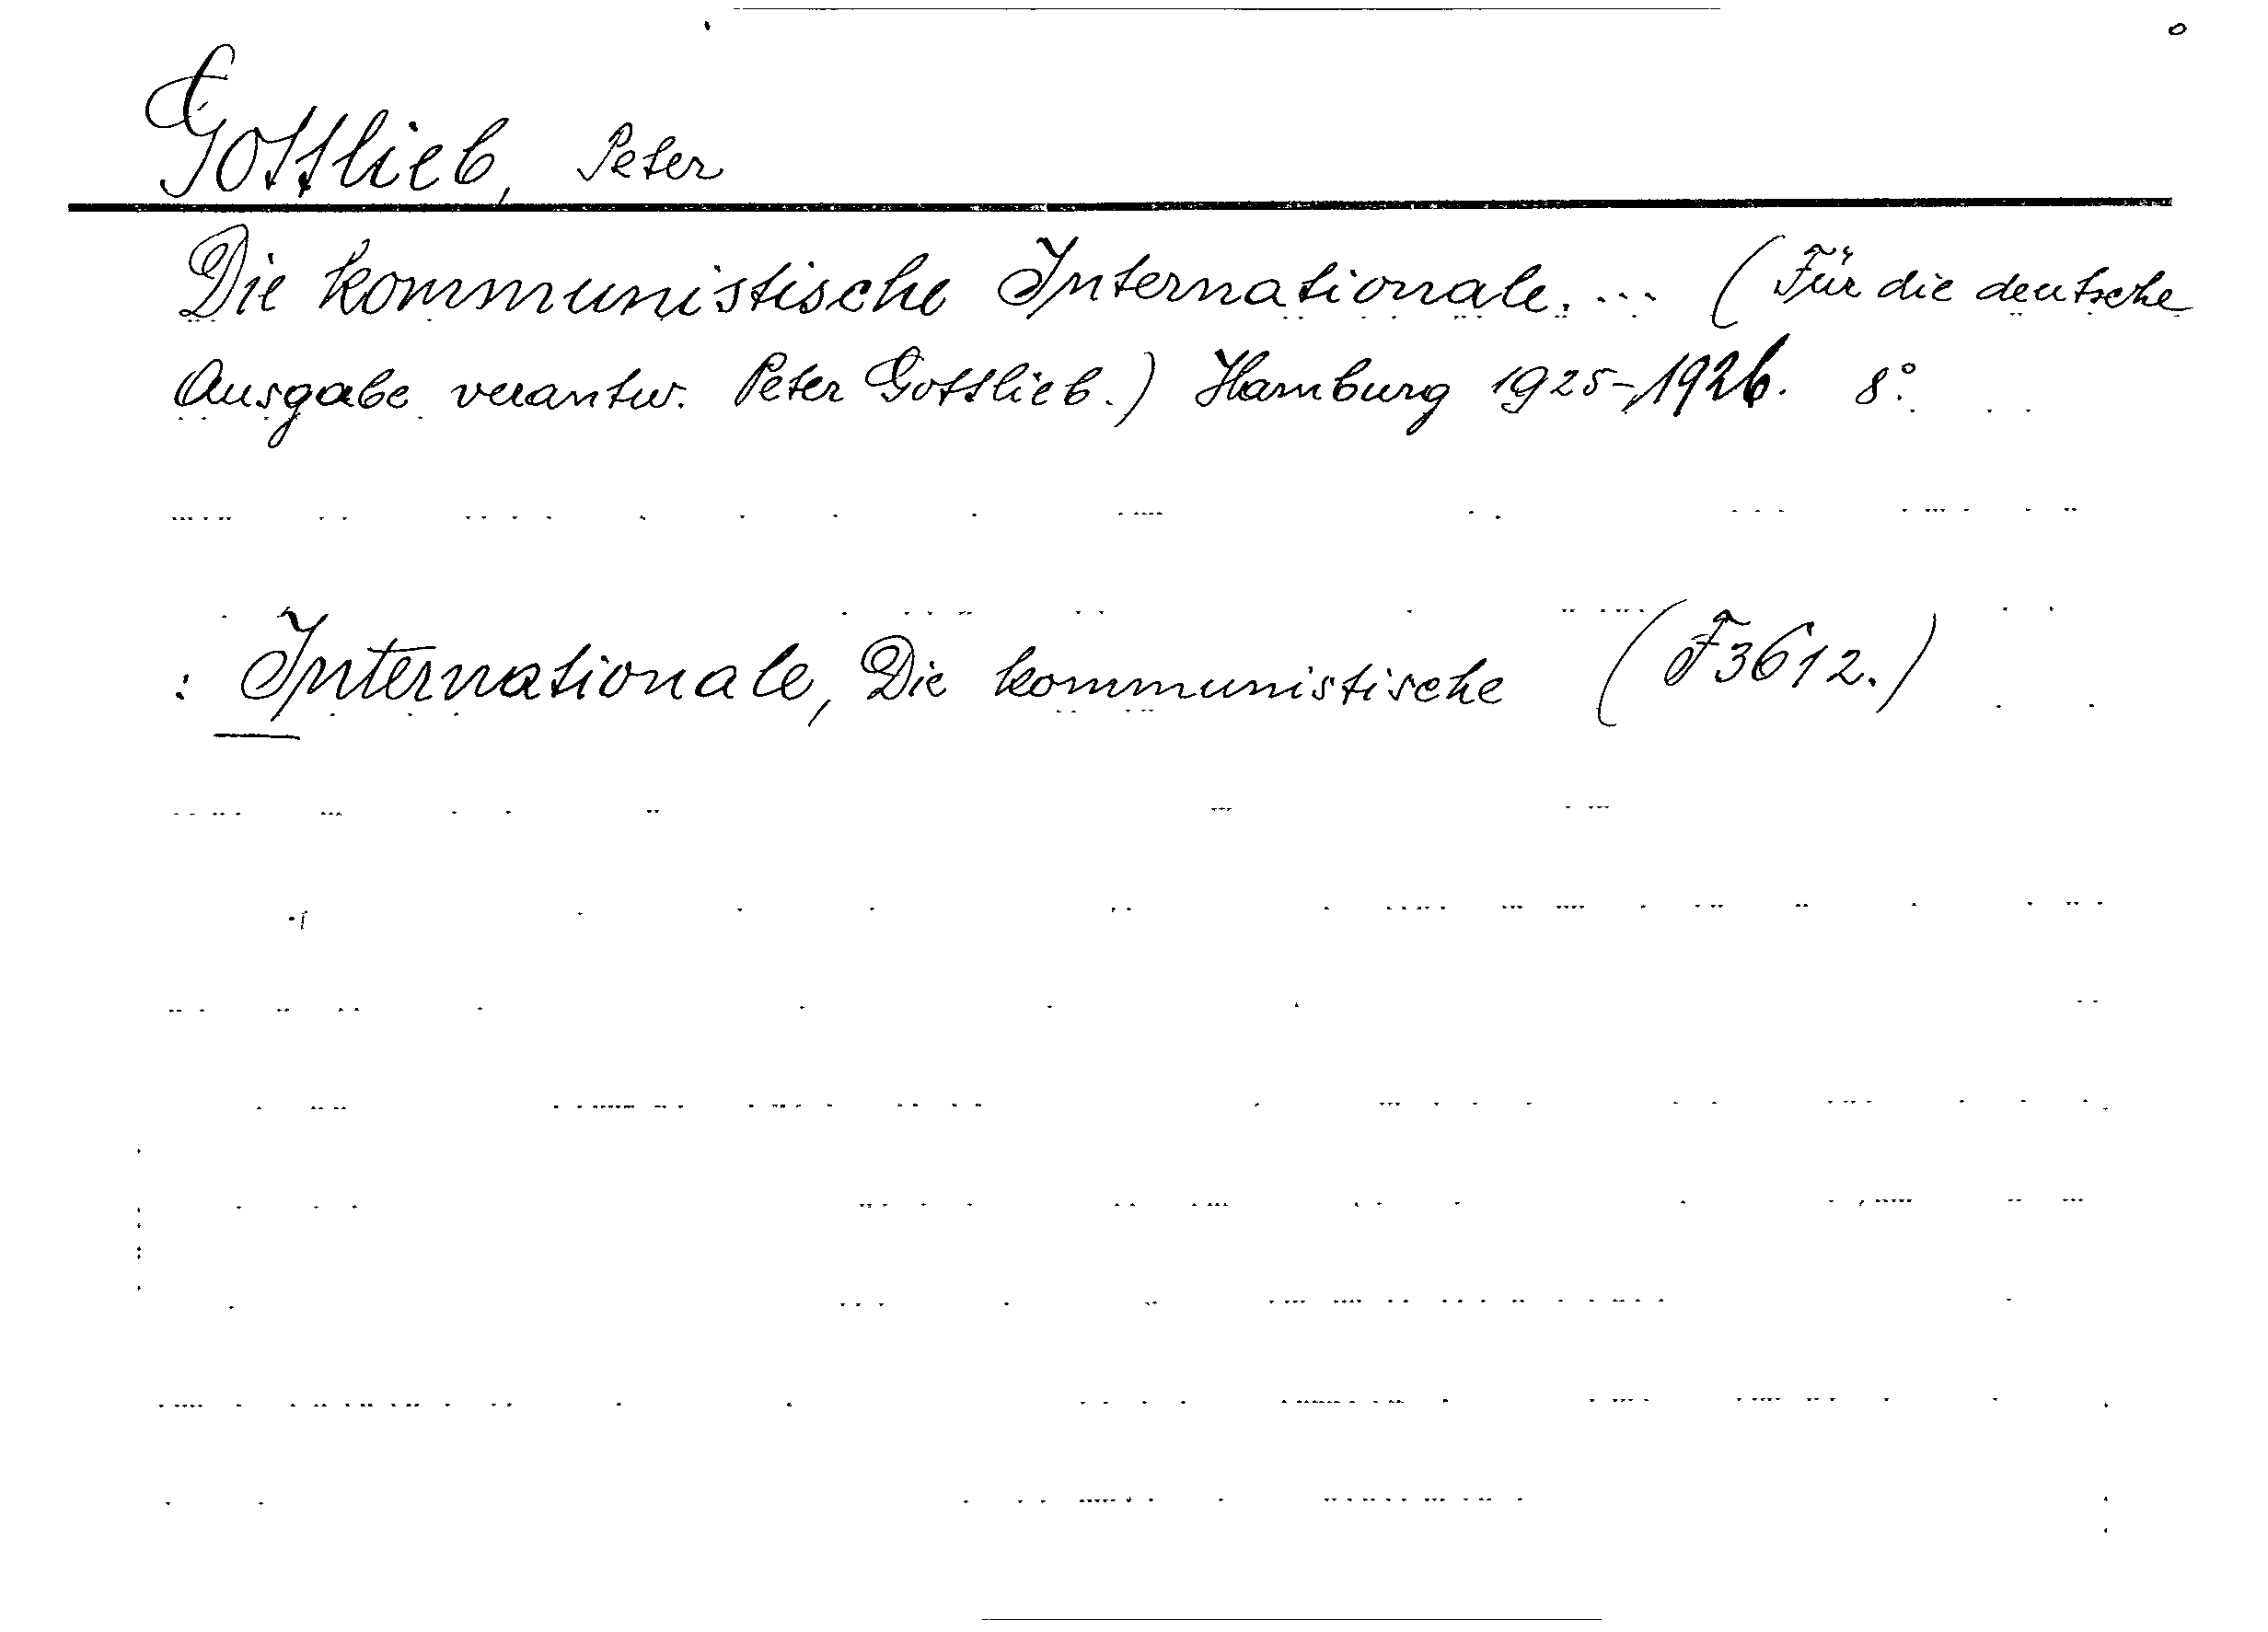 Gottlieb, Peter
Die kommunistische Internationale. ... (Für die deutsche
Ausgabe verantw. Peter Gottlieb.) Hamburg 1925-1926. 8°.
: Internationale, Die kommunistische (F3612.)